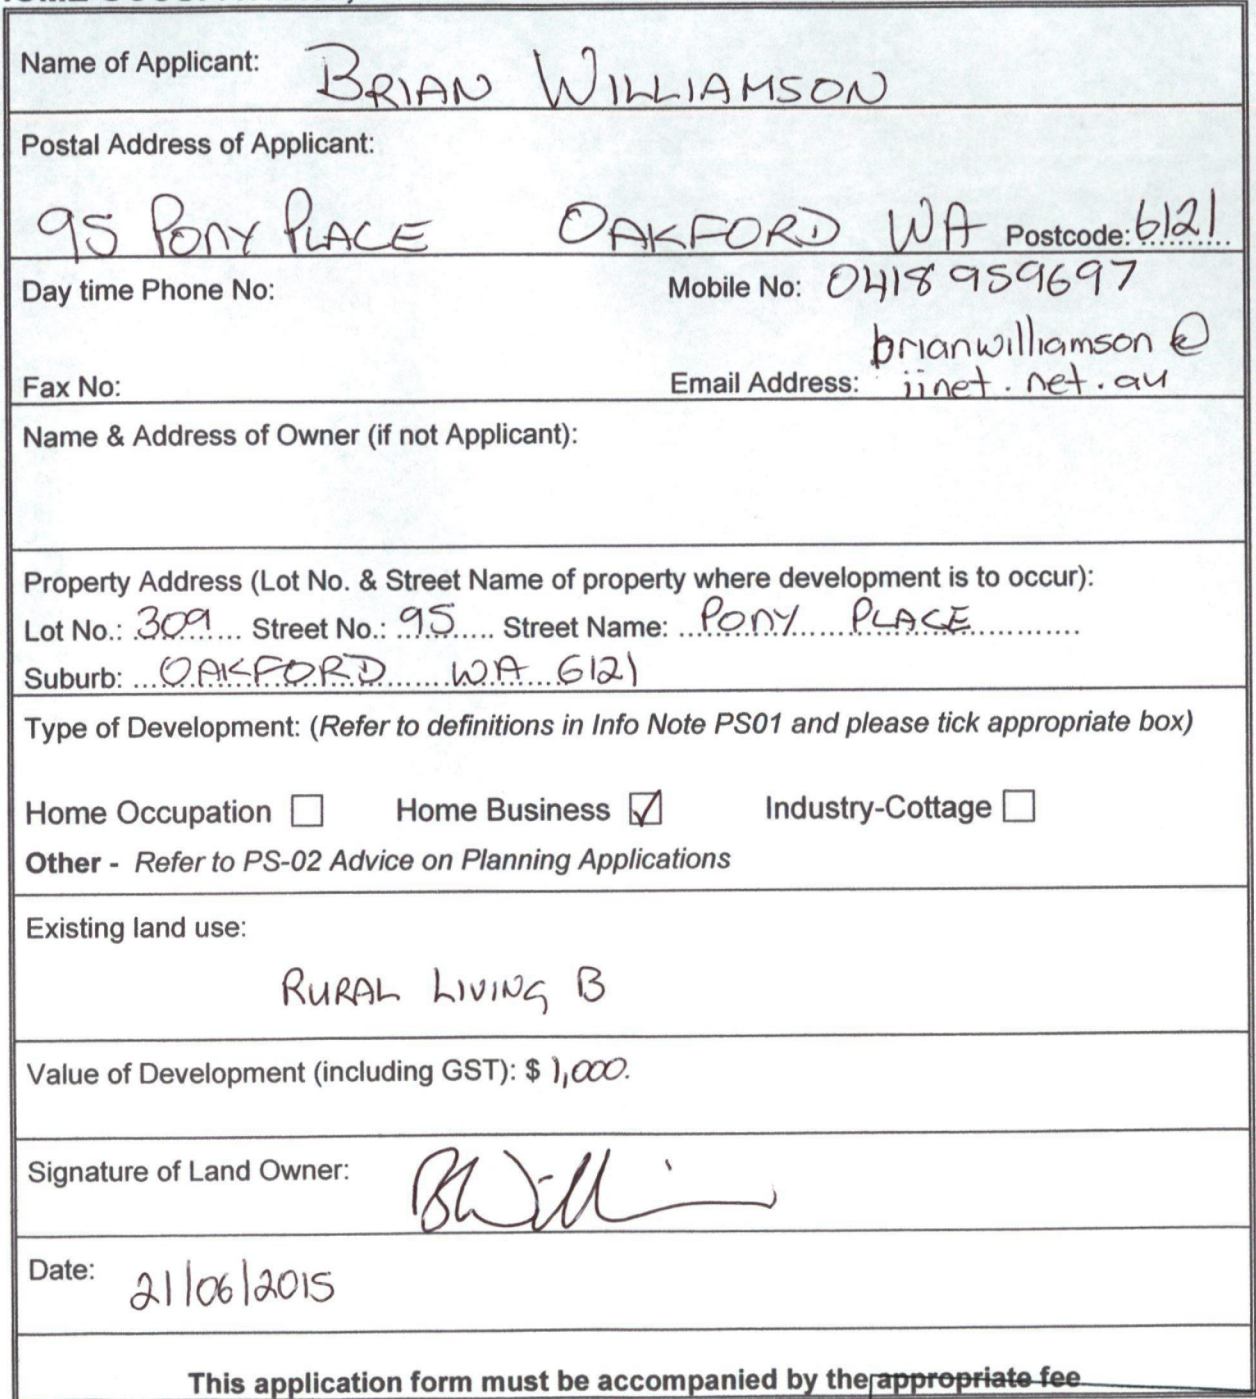 Name of Applicant: BRIAN WILLIAMSON
Postal Address of Applicant:
95 PONY PLACE OAKFORD WA Postcode: 6121
Day time Phone No: Mobile No: 0418 959697
brianwilliamson @
Fax No: Email Address: iinet.net.au
Name & Address of Owner (if not Applicant):
Property Address (Lot No. & Street Name of property where development is to occur):
Lot No.: 309 Street No.: 95 Street Name: PONY PLACE
Suburb: OAKFORD WA 6121
Type of Development: (Refer to definitions in Info Note PS01 and please tick appropriate box)
Home Occupation ☐ Home Business ☑ Industry-Cottage ☐
Other - Refer to PS-02 Advice on Planning Applications
Existing land use:
RURAL LIVING B
Value of Development (including GST): $ 1,000.
Signature of Land Owner:
Date: 21/06/2015
This application form must be accompanied by the appropriate fee